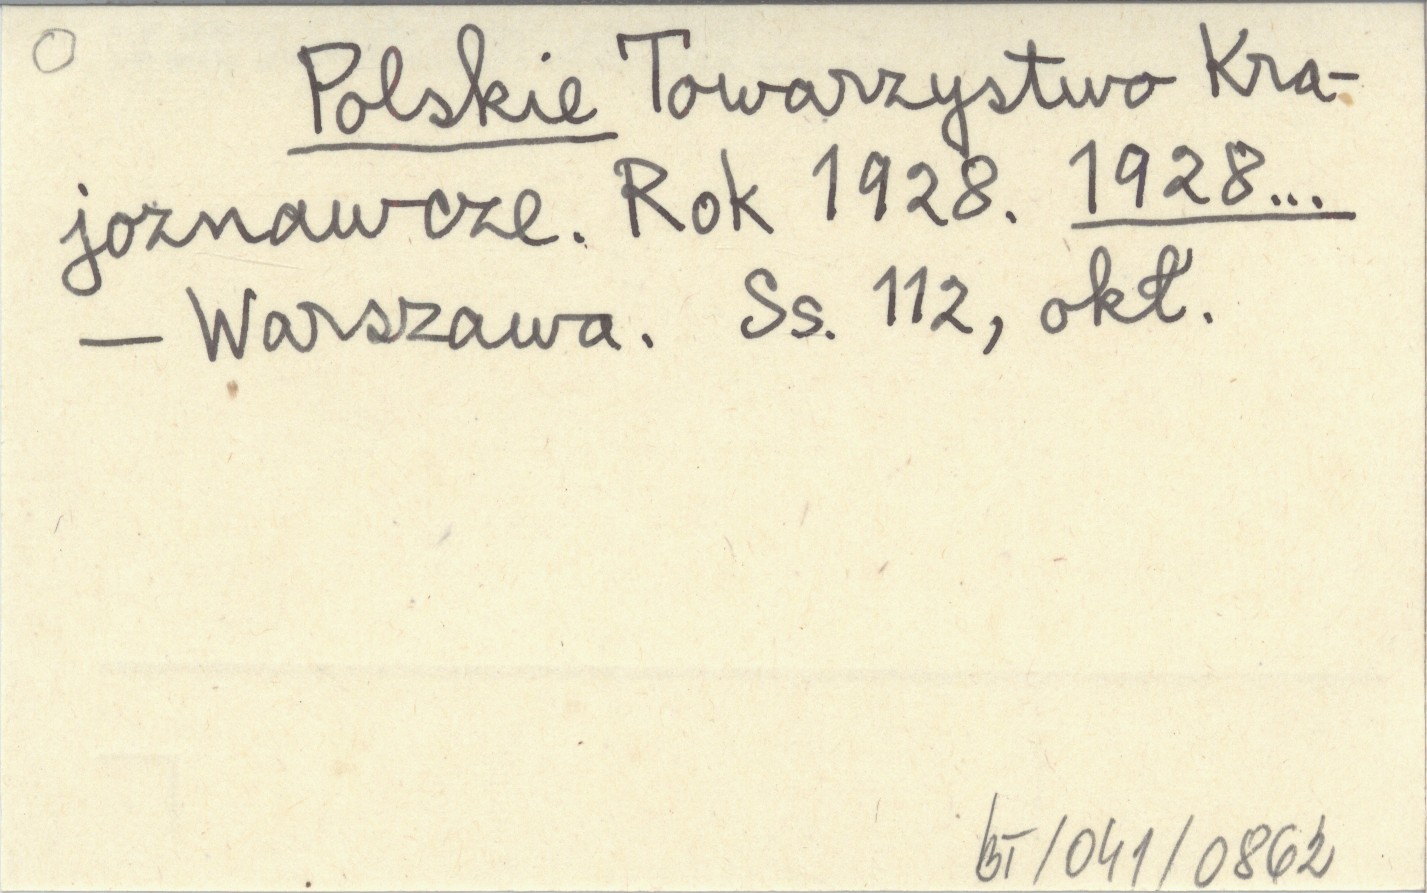 Polskie Towarzystwo Kra-
joznawcze. Rok 1928. 1928...
— Warszawa. Ss. 112, okł.
BT/041/0862